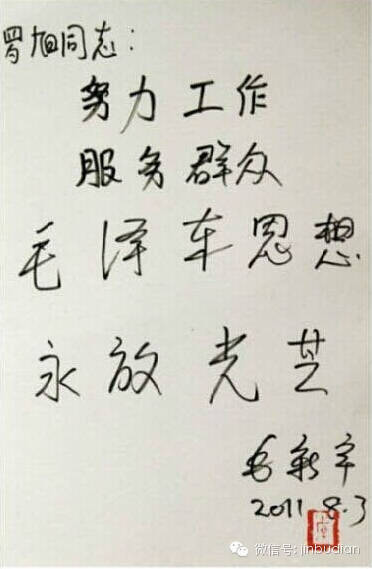 罗旭同志:
努力工作
服务群众
毛泽东思想
永放光芒
毛新宇
2011.8.3
微信号: jinbudian